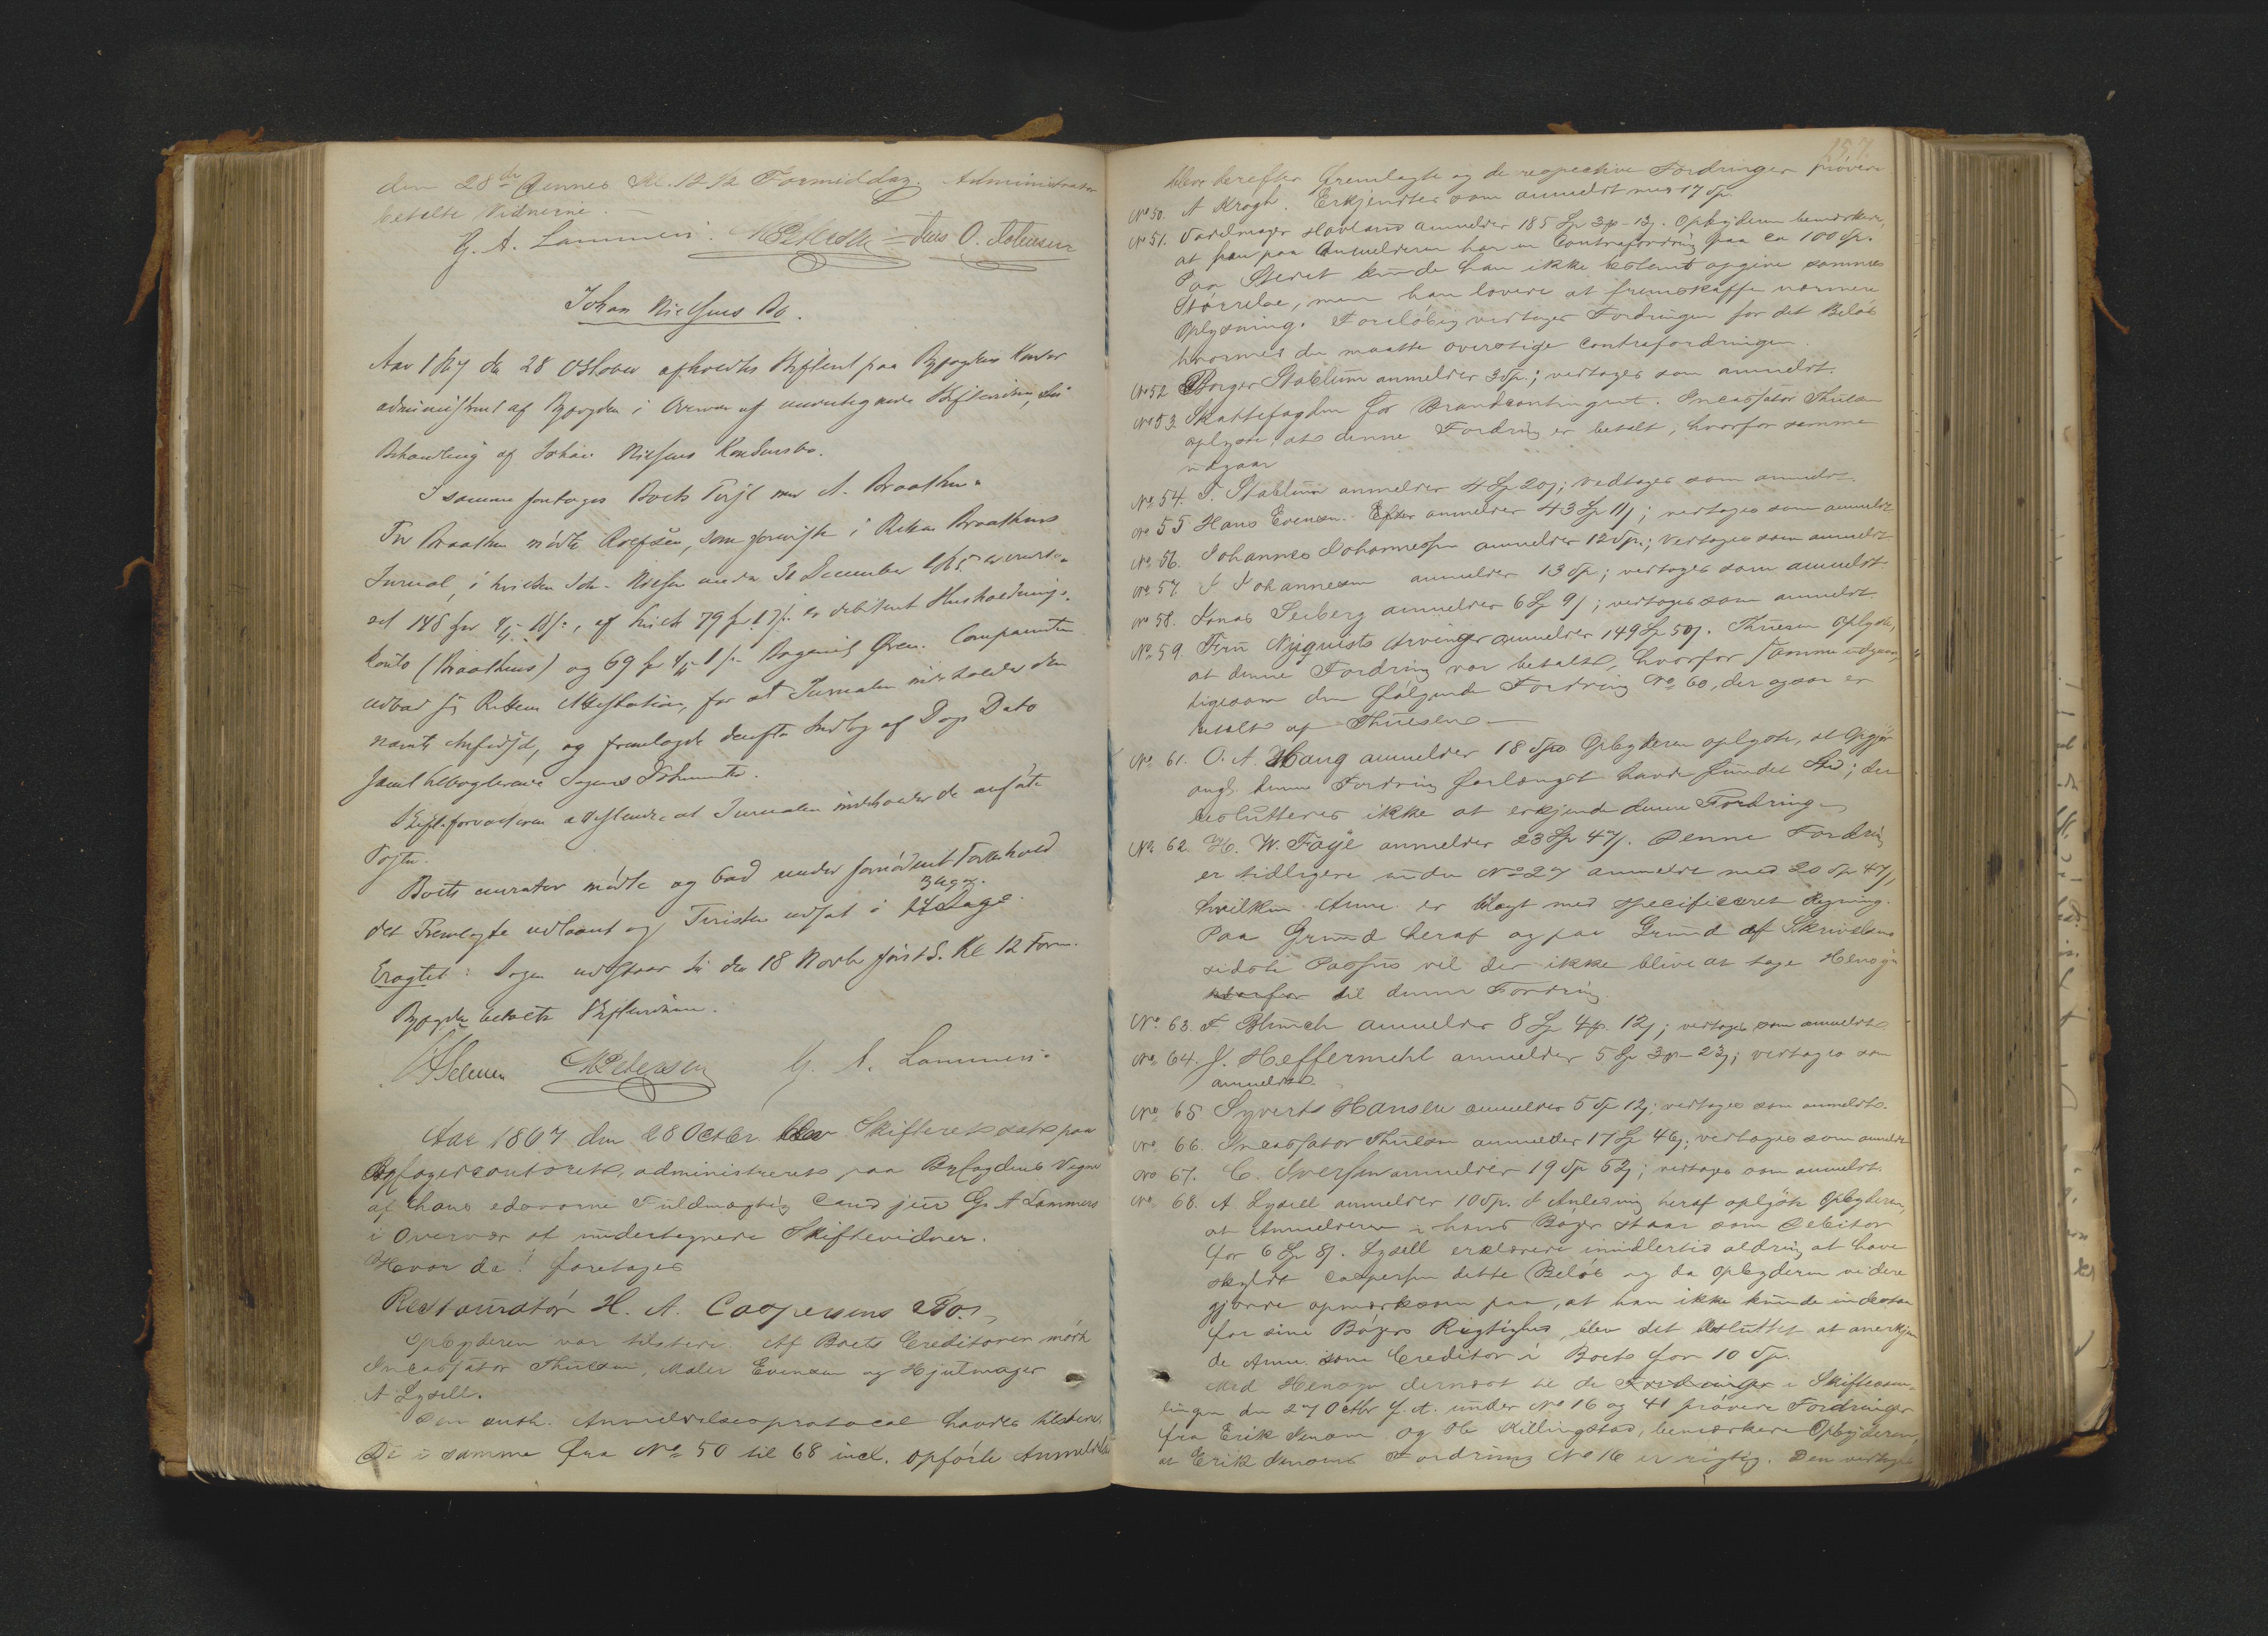 den 28de dennes Kl. 12 1/2 Formiddag. Administrator
betalte Vidnerne.
G. A. Lammers. MPetersen Jens O. Johnsen
Johan Nielsens Bo.
Aar 1867 den 28 October afholdtes Skifteret paa Byfogdens Kontor
administreret af Byfogden i Overvær af undertegnede Skiftevidner, til
Behandling af Johan Nielsens Konkursbo.
I samme foretoges Boets Tvist med A. Braathen.
For Braathen mødte Roefsen, som
Jurnal, i hvilken Joh. Nielsen under 30 December 1865 er
148
Konto (Braathens) og 69 Comparenten
udbad sig Rettens Attestation, for at Jurnalen indeholder den
nævnte og fremlagde derefter Indlæg af D. D. Dato
samt
Skifteforvalteren attesterede at Jurnalen indeholder de anførte
Poster.
Boets curator mødte og bad under fornødent Forbehold
3 Uger.
det Fremlagte udlaant og Tvisten udsat i Dage.
Eragtet: Sagen udstaar til den 18 Novbr førsts. Kl 12 Form.
Byfogden betalte Skiftevidnerne.
MPetersen G. A. Lammers.
Aar 1867 den 28 Octbr. blev Skifteret sat paa
Byfogedcontoret, administreret paa Byfogdens Vegne
af hans edsvorne Fuldmægtig Cand jur G. A Lammers
i Overvær af undertegnede Skiftevidner.
Hvor da! foretages
Restauratør H. A. Caspersens Bo.
Opbyderen var tilstede. Af Boets Creditorer mødte
Incassator Thuesen, Maler Evensen og Hjulmager
A Lydell.
Den auth. Anmeldelsesprotocol havdes tilstede.
De i samme fra No 50 til 68 incl. opførte Anmeldelser
157
blev derefter fremlagte og de respective Fordringer prøvede
No 50. A Krogh. Erkjendtes som anmeldt med 17 Sp.
No 51. Hovland anmelder 185 Sp 3 - 12. Opbyderen bemærkede,
at han paa Anmelderen har en Contrafordring paa ca 100 Sp.
Paa Stedet kunde han ikke bestemt opgive sammes
Størrelse, men han lovede at fremskaffe nærmere
Oplysning. Foreløbig vedtages Fordringen for det Beløb
hvormed den maatte overstige Contrafordringen.
No 52 Borger Stablum anmelder 3 Sp.; vedtages som anmeldt.
No 53 Skattefogden for Brandcontingent. Incassator Thuesen
oplyste, at denne Fordring er betalt, hvorfor samme
udgaar
No 54. T. Stablum anmelder 4 Sp 20; vedtages som anmeldt.
No 55 Hans Evensen. anmelder 43 Sp 11; vedtages som anmeldt
No 56. Johannes Johannesen anmelder 12 Sp.; vedtages som anmeldt
No 57 I Johannesen anmelder 13 Sp; vedtages som anmeldt.
No 58. Jonas Seeberg anmelder 6 Sp 9; vedtages som anmeldt
No 59. Fru Nyquists Arvinger anmelder 149 Sp 50. Thuesen oplyste,
at denne Fordring var betalt, hvorfor samme udgaar,
ligesom den følgende Fordring No 60, der ogsaa er
betalt af Thuesen
No 61. O. A. Haug anmelder 18 Sp. Opbyderen oplyste, at Opgjør
angl. denne Fordring forlængst havde fundet Sted; der
besluttedes ikke at erkjende denne Fordring
No 62 H. W. Faÿe anmelder 23 Sp 47. Denne Fordring
er tidligere under No 27 anmeldt med 20 Sp 47,
hvilken Anm. er bilagt med specificeret Regning.
Paa Grund heraf og paa Grund af Skrivelsens
sidste Passus vil der ikke blive at tage Hensyn
til denne Fordring
No 63. F. Blunch anmelder 8 Sp 4. 12; vedtages som anmeldt
No 64. J. Heffermehl anmelder 5 Sp 3 - 23; vedtages som
anmeldt.
No 65 Syvert Hansen anmelder 5 Sp 12; vedtages som anmeldt.
No 66. Incassator Thuesen anmelder 17 Sp 46; vedtages som anmeldt
No 67. C. Iversen anmelder 19 Sp 52; vedtages som anmeldt.
No 68. A Lydell anmelder 10 Sp. I Anledning heraf oplyste Opbyderen,
at Anmelderen i hans Bøger staar som Debitor
for 6 Sp 8. Lydell erklærede imidlertid aldrig at have
skyldt Caspersen dette Beløb og da Opbyderen videre
gjorde opmærksom paa, at han ikke kunde indestaa
for sine Bøgers Rigtighed, blev det besluttet at anerkjen
de Anm. som Creditor i Boet for 10 Sp.
Med Hensyn dernæst til de Fordringer i Skiftesam-
lingen den 27 Octbr d. A. under No 16 og 41 prøvede Fordringer
fra Erik Simons og Ole Killingstad, bemærkede Opbyderen,
at Erik Simons Fordring No 16 er rigtig. Den vedtages